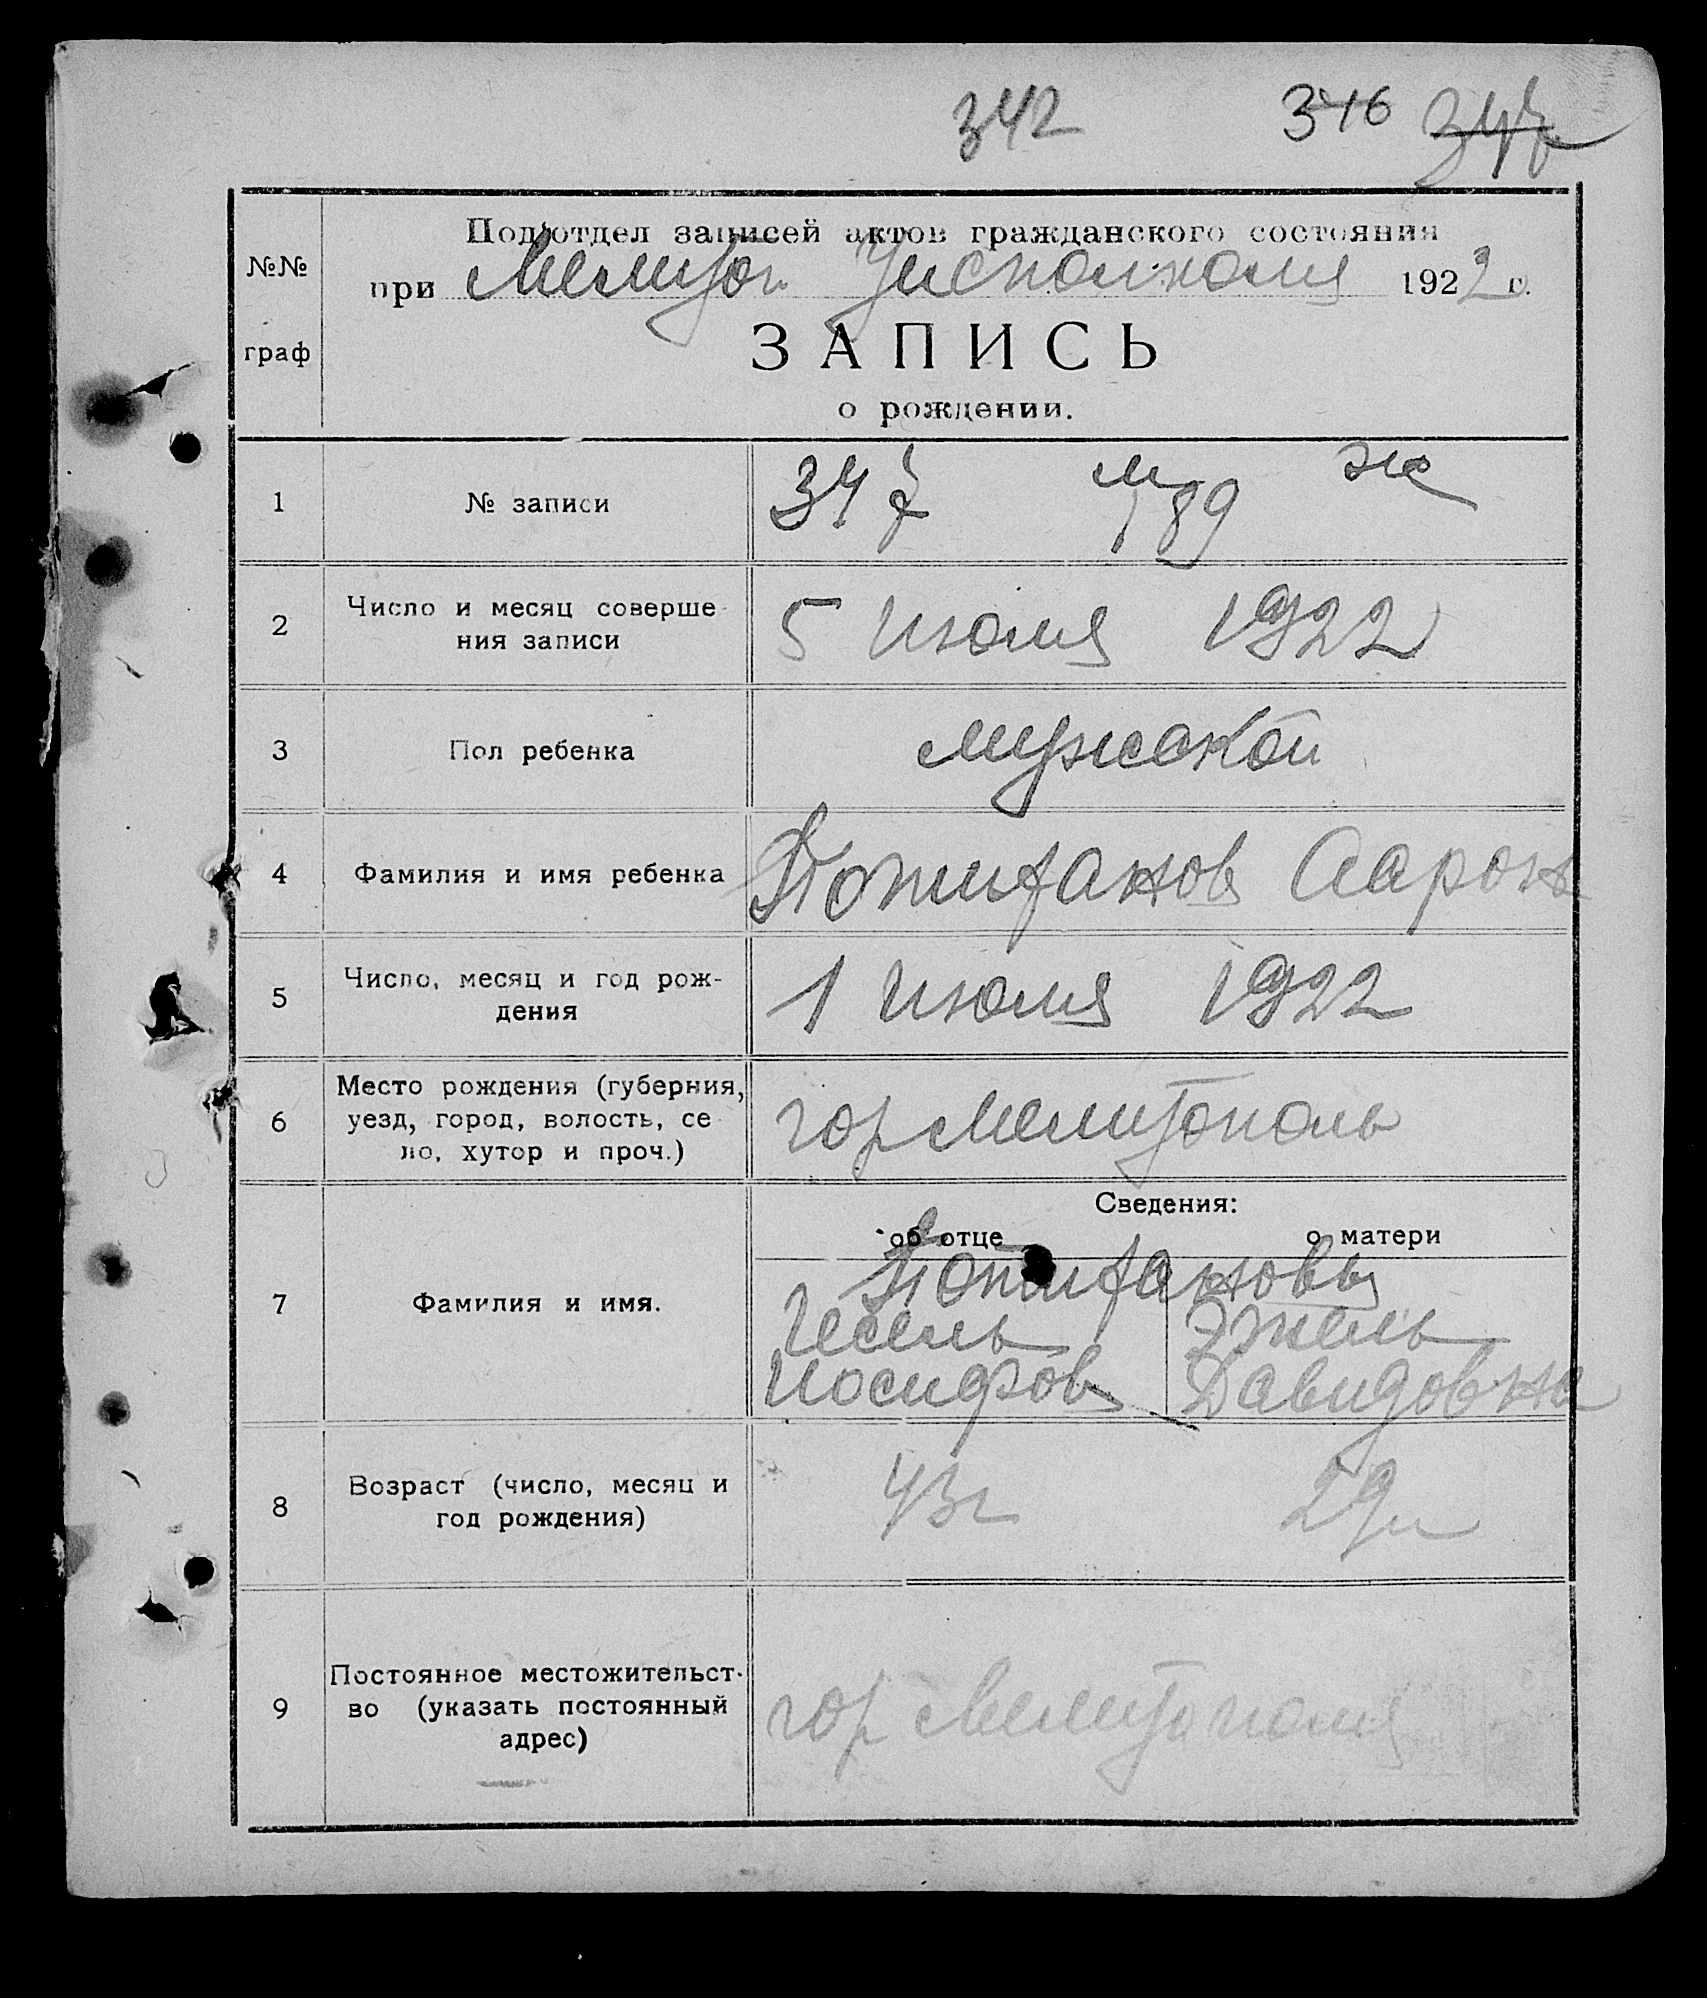 342 346 347
Подотдел записей актов гражданского состояния
№№
при Мелитоп. Уисполкоме 1922 г.
граф
ЗАПИСЬ
о рождении.
1 № записи 347 м 189 ж
2 Число и месяц соверше-
ния записи
5 Июля 1922
3 Пол ребенка мужской
4 Фамилия и имя ребенка Потифанов Аарон
5 Число, месяц и год рож-
дения
1 Июля 1922
6 Место рождения (губерния,
уезд, город, волость, се-
ло, хутор и проч.)
гор Мелитополь
Сведения:
об отце о матери
7 Фамилия и имя.
Потифановы
Иосифов Давидовна
8 Возраст (число, месяц и
год рождения)
43г 29л
9 Постоянное местожительст-
во (указать постоянный
адрес)
гор Мелитополь